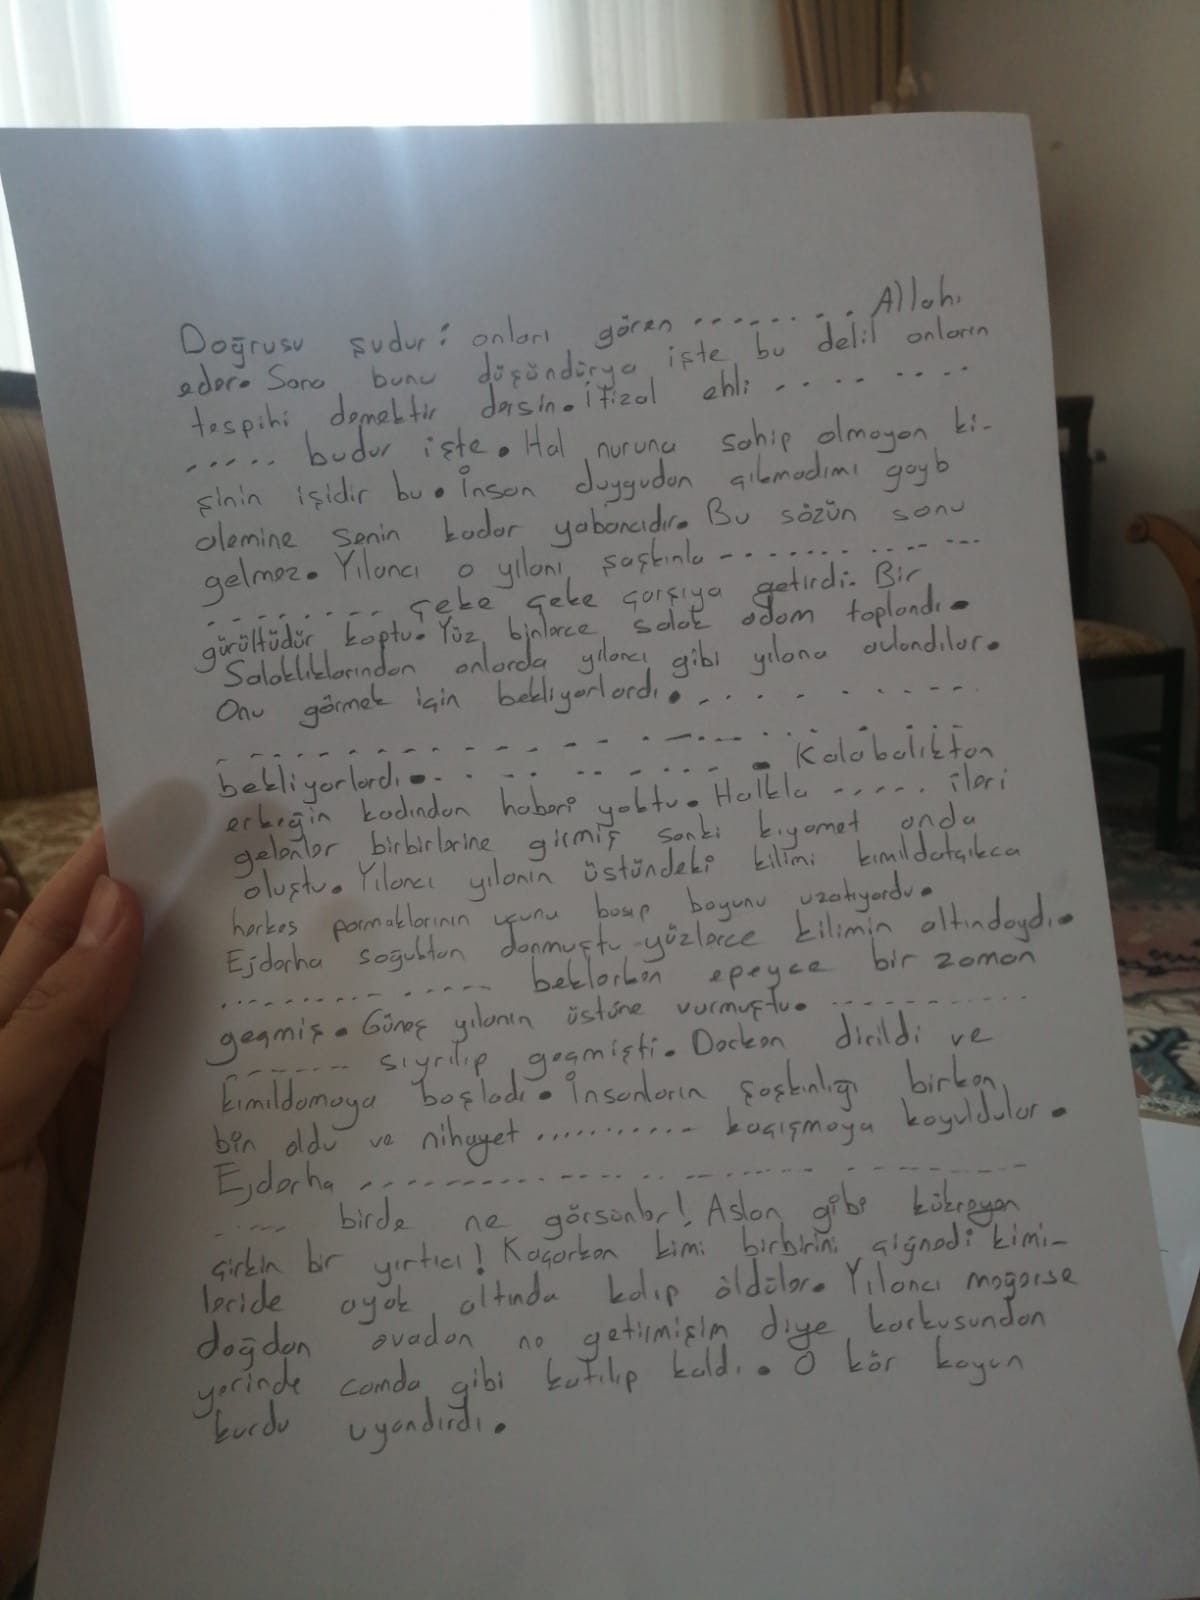 Doğrusu şudur: onları gören ........ Allahı
eder. Sana bunu düşündürya işte bu delil onların
tespihi demektir dersin. İtizal ehli .... ....
..... budur işte. Hal nuruna sahip olmayan ki-
şinin işidir bu. İnsan duygudan çıkmadımı gayb
alemine senin kadar yabancıdır. Bu sözün sonu
gelmez. Yılancı o yılanı şaşkınla -------------
------- çeke çeke çarşıya getirdi. Bir
gürültüdür koptu. Yüz binlerce salak adam toplandı.
Salaklıklarından onlarda yılancı gibi yılana avlandılar.
Onu görmek için bekliyorlardı. - - - - - - - - -
- - - - - - - - - - - - - - - - - - - -
bekliyorlardı. - - - - - - - - - . Kalabalıktan
erkeğin kadından haberi yoktu. Halkla ..... ileri
gelenler birbirlerine girmiş sanki kıyamet anda
oluştu. Yılancı yılanın üstündeki kilimi kımıldatçıkca
herkes parmaklarının ucunu basıp boyunu uzatıyordu.
Ejdarha soğuktan donmuştu yüzlerce kilimin altındaydı.
--------------- beklerken epeyce bir zaman
geçmiş. Güneş yılanın üstüne vurmuştu. -----------
------- sıyrılıp geçmişti. Docken dirildi ve
kımıldamaya başladı. İnsanların şaşkınlığı birken
bin oldu ve nihayet ........... kaçışmaya koyuldular.
Ejdarha ------------------------------
---- birde ne görsünler! Aslan gibi kükreyen
çirkin bir yırtıcı! Kaçarken kimi birbirini çiğnedi kimi-
leride ayak altında kalıp öldüler. Yılancı meğerse
dağdan ovadan ne getirmişim diye korkusundan
yerinde camda gibi katılıp kaldı. O kör koyun
kurdu uyandırdı.